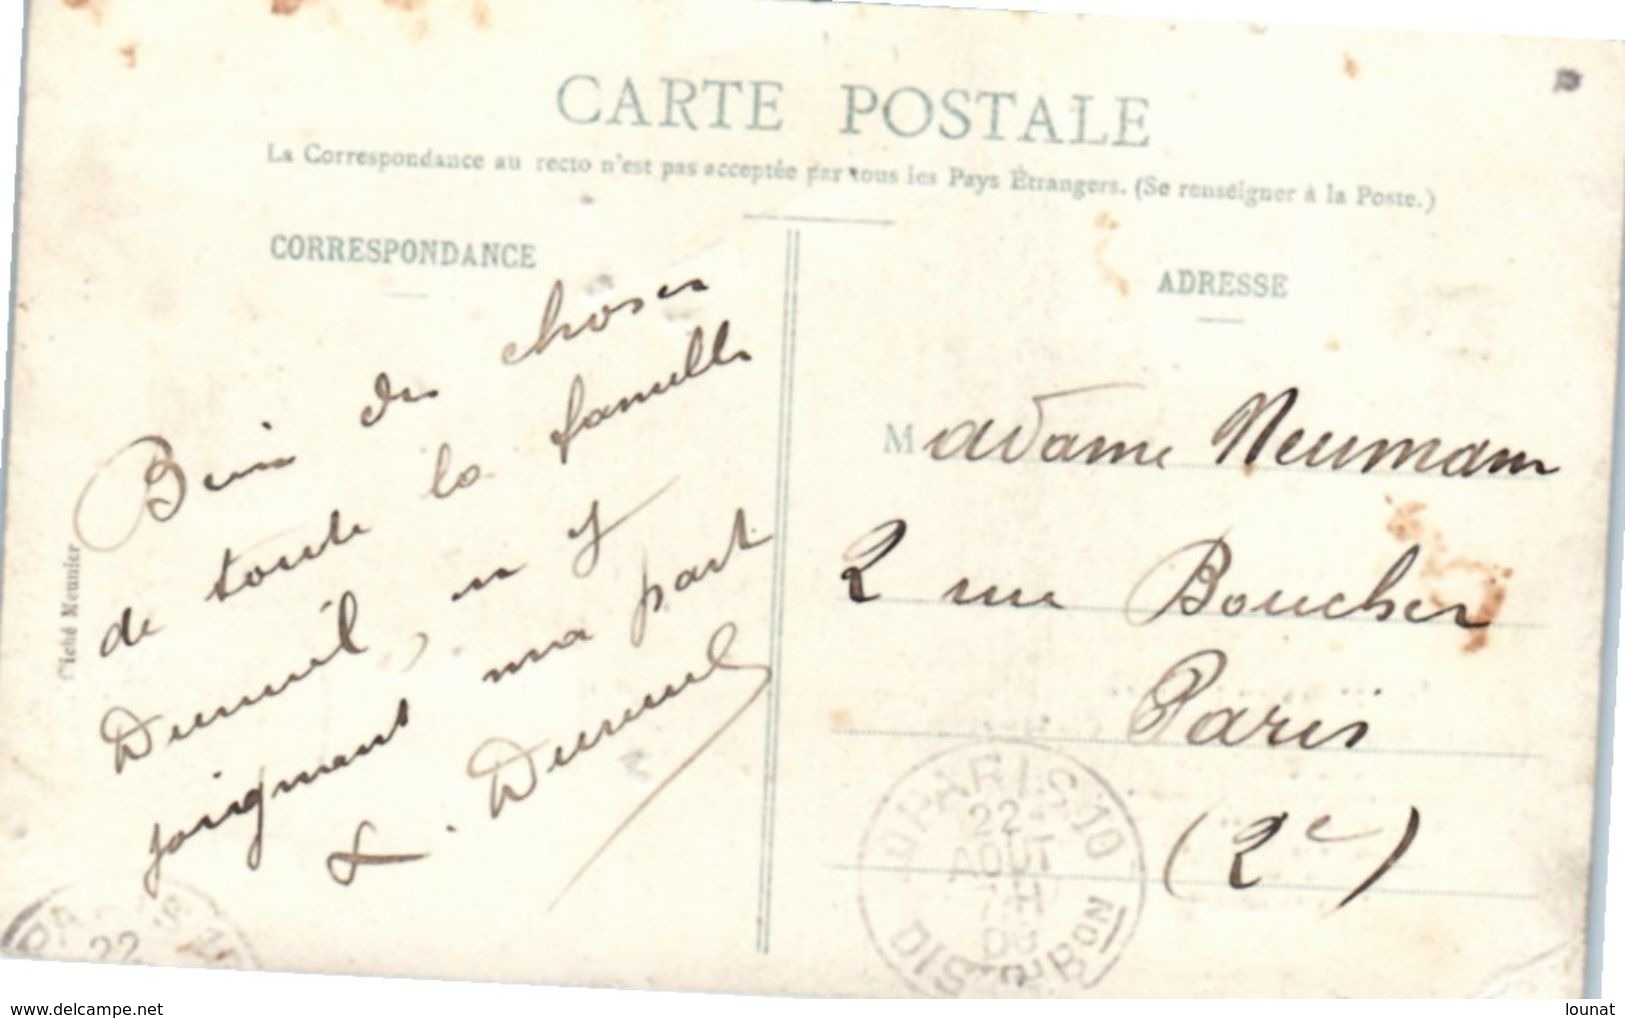 CARTE POSTALE
La Correspondance au recto n'est pas acceptée par tous les Pays Étrangers. (Se renseigner à la Poste.)
CORRESPONDANCE
Bien des choses
de toute la famille
Dumuil, en y
joignant ma part
L. Dumuil
Cliché Meunier
ADRESSE
Madame Neumann
2 rue Boucher
Paris
(2e)
PARIS 10
22
AOUT
DIST
BON
22
www.delcampe.net
lounat